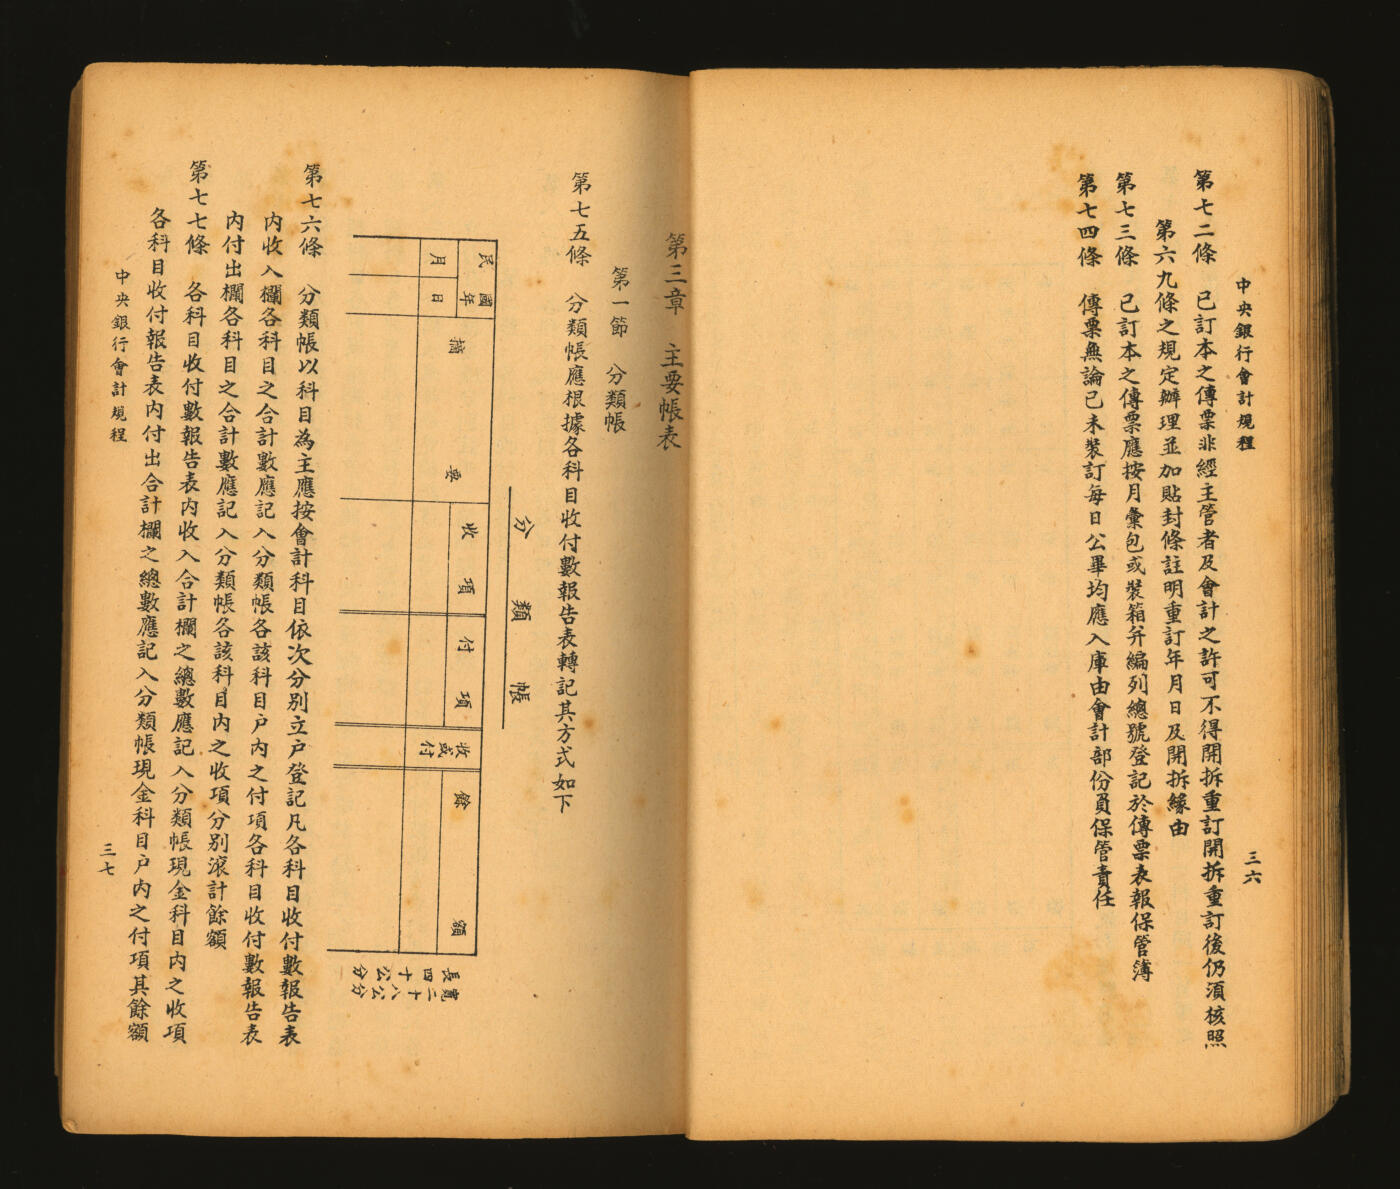 中央銀行會計規程
三六
第七二條　已訂本之傳票非經主管者及會計之許可不得開拆重訂開拆重訂後仍須核照
第六九條之規定辦理並加貼封條註明重訂年月日及開拆緣由
第七三條　已訂本之傳票應按月彙包或裝箱并編列總號登記於傳票表報保管簿
第七四條　傳票無論已未裝訂每日公畢均應入庫由會計部份員保管責任
第三章　主要帳表
第一節　分類帳
第七五條　分類帳應根據各科目收付數報告表轉記其方式如下
分類帳
民國　年
月
日
摘要
收項
付項
收或付
餘額
寬二十八公分
長四十公分
第七六條　分類帳以科目為主應按會計科目依次分別立户登記凡各科目收付數報告表
內收入欄各科目之合計數應記入分類帳各該科目户內之付項各科目收付數報告表
內付出欄各科目之合計數應記入分類帳各該科目內之收項分別滾計餘額
第七七條　各科目收付數報告表內收入合計欄之總數應記入分類帳現金科目內之收項
各科目收付報告表內付出合計欄之總數應記入分類帳現金科目户內之付項其餘額
中央銀行會計規程
三七